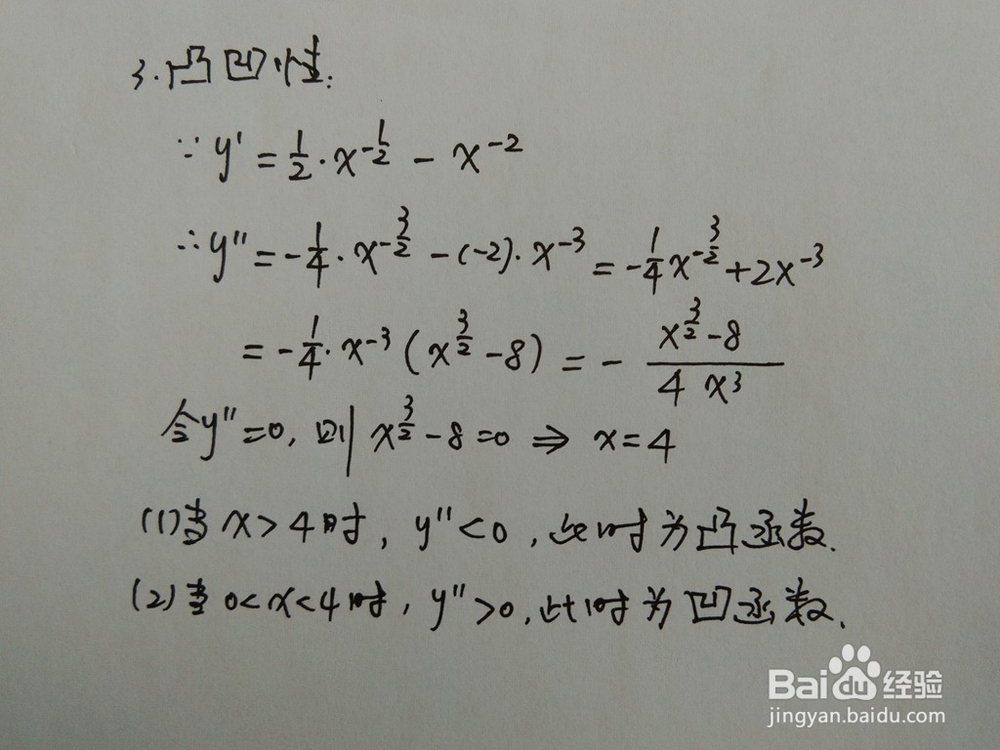 3.凸凹性:
∵ y' = 1/2·x^(-1/2) - x^(-2)
∴ y'' = -1/4·x^(-3/2) - (-2)·x^(-3) = -1/4x^(-3/2) + 2x^(-3)
= -1/4·x^(-3)(x^(3/2) - 8) = - (x^(3/2) - 8)/(4x^3)
令y''=0, 则 x^(3/2) - 8 = 0 ⇒ x = 4
(1)当x>4时, y''<0, 此时为凸函数.
(2)当0<x<4时, y''>0, 此时为凹函数.
Baidu经验
jingyan.baidu.com